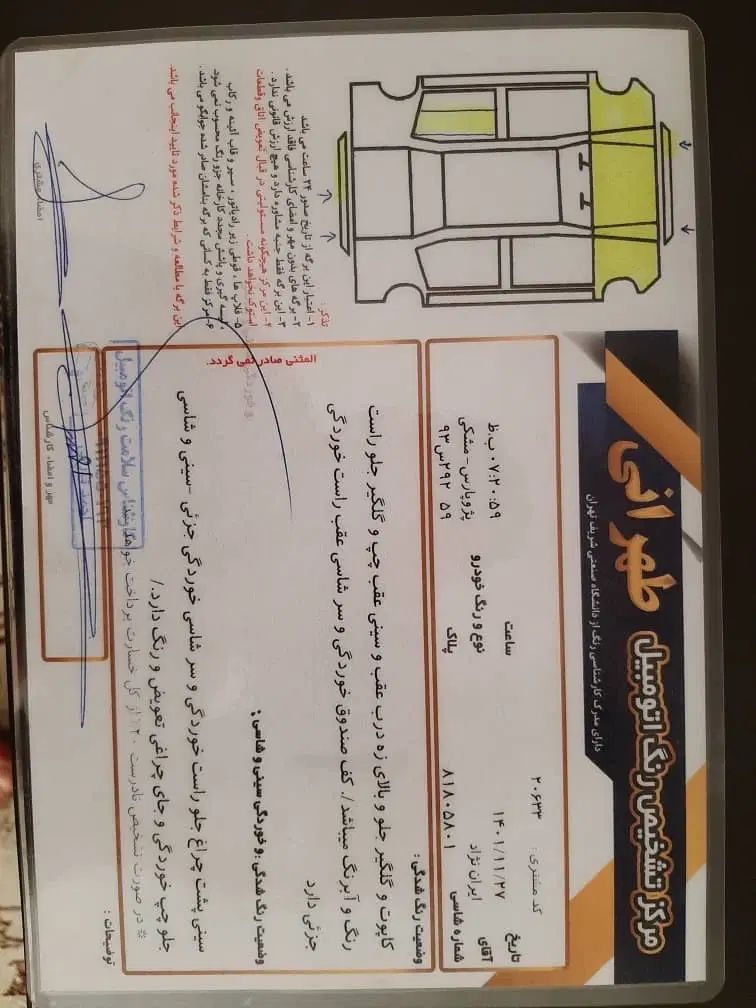 مرکز تشخیص رنگ اتومبیل
طهرانی
دارای مدرک کارشناسی رنگ از دانشگاه صنعتی شریف تهران
کد مشتری : ۲۰۶۳۳
تاریخ ۱۴۰۱/۱۱/۲۷
ساعت ۰۷:۲۰:۵۹ ب.ظ
آقای ایران نژاد
نوع و رنگ خودرو پژوپارس - مشکی
شماره شاسی ۸۱۸۰۵۸۰۱
پلاک ۵۹ ۲۹۲س۹۳
وضعیت رنگ شدگی :
کاپوت و گلگیر جلو و بالای زه درب عقب و سینی عقب چپ و گلگیر جلو راست
رنگ و آبرنگ میباشد /. کف صندوق خوردگی و سر شاسی عقب راست خوردگی
جزئی دارد
وضعیت رنگ شدگی :و خوردگی سینی و شاسی :
سینی پشت چراغ جلو راست خوردگی و سر شاسی خوردگی جزئی -سینی و شاسی
جلو چپ خوردگی و جای چراغی تعویض و رنگ دارد./
توضیحات :
※ در صورت تشخیص نادرست ۲۰٪ از کل خسارت پرداخت خواهد
المثنی صادر نمی گردد.
تذکر :
۱- اعتبار این برگه از تاریخ صدور ۲۴ ساعت می باشد
۲- برگه های بدون مهر و امضای کارشناسی فاقد ارزش می باشد .
۳- این برگه فقط جنبه مشاوره دارد و هیچ ارزش قانونی ندارد .
۴- این مرکز هیچگونه مسئولیتی در قبال تعویض اتاق وقطعات
استوک نخواهد داشت .
۵- قلاپ ها ، قوطی زیر رادیاتور ، سپر و قاب آئینه و رکاب
، لیسه گیری و پاشش مجدد کارخانه جزو رنگ محسوب نمی شود.
۶- مرکز فقط به کسانی که برگه بنامشان صادر شده جوابگو می باشد .
این برگه با مطالعه و شرایط ذکر شده مورد تایید اینجانب می باشد.
امضاء مشتری
کارشناس سلامت رنگ اتومبیل
مهر و امضاء کارشناس